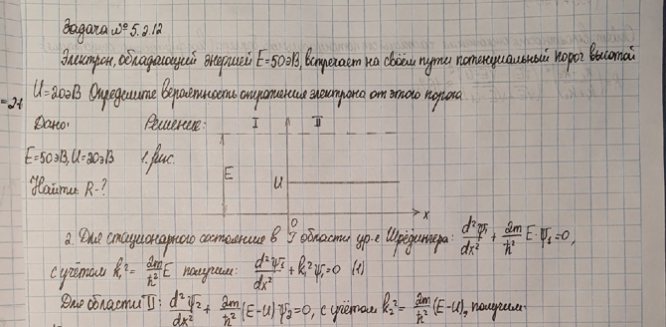 Задача №5.2.12
Электрон, обладающий энергией E=50эВ, встречает на своём пути потенциальный порог высотой
U=20эВ Определите вероятность отражения электрона от этого порога.
Дано: Решение: I II
E=50эВ, U=20эВ 1. рис. E U
Найти R-? x
0
2. Для стационарного состояние в I области ур-е Шрёдингера: d²ψ₁/dx² + 2m/ħ² E·ψ₁=0,
с учётом k₁² = 2m/ħ² E получим: d²ψ₁/dx² + k₁²ψ₁=0 (1)
Для области II: d²ψ₂/dx² + 2m/ħ² (E-U)ψ₂=0, с учётом k₂² = 2m/ħ² (E-U), получим: